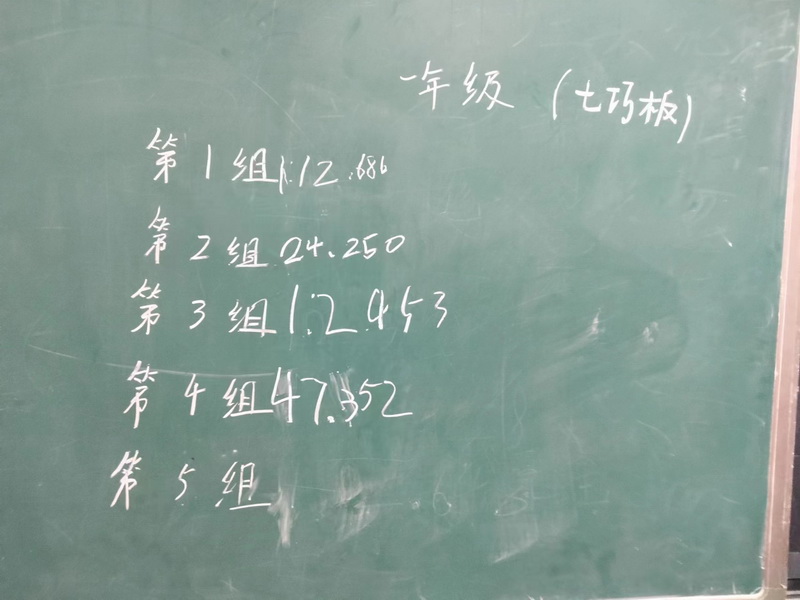 一年级（七巧板）
第1组1:12.686
第2组24.250
第3组1:2.453
第4组47.352
第5组